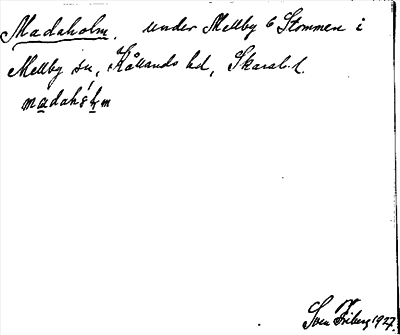 Madaholm. under Mellby 6 Stommen i
Mellby sn, Kållands hd, Skarab. l.
madahólm
Sven Friberg 1927.